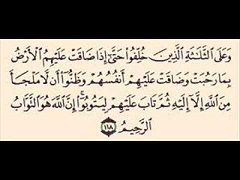 وَعَلَى ٱلثَّلَٰثَةِ ٱلَّذِينَ خُلِّفُوا۟ حَتَّىٰٓ إِذَا ضَاقَتْ عَلَيْهِمُ ٱلْأَرْضُ
بِمَا رَحُبَتْ وَضَاقَتْ عَلَيْهِمْ أَنفُسُهُمْ وَظَنُّوٓا۟ أَن لَّا مَلْجَأَ
مِنَ ٱللَّهِ إِلَّآ إِلَيْهِ ثُمَّ تَابَ عَلَيْهِمْ لِيَتُوبُوٓا۟ إِنَّ ٱللَّهَ هُوَ ٱلتَّوَّابُ
ٱلرَّحِيمُ ١١٨